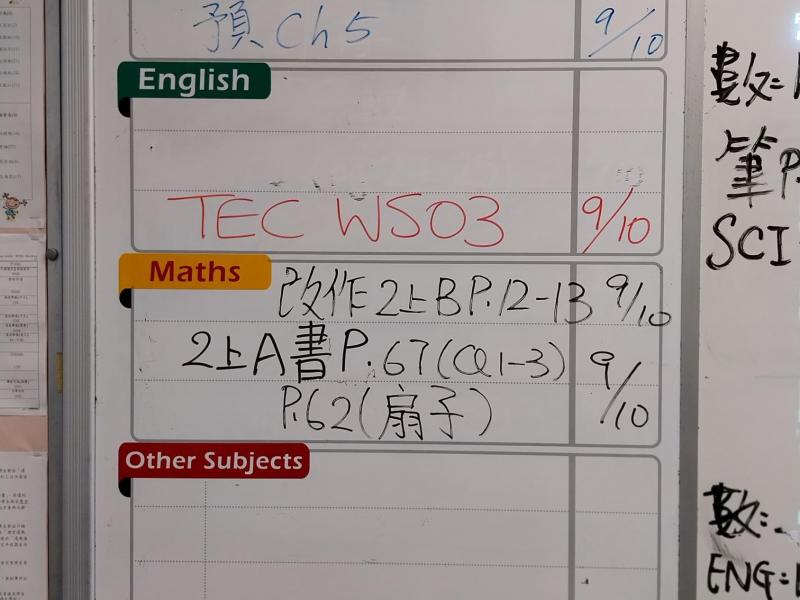 預 Ch 5 9/10
English
TEC WS03 9/10
Maths
改作 2上B P.12-13 9/10
2上A書 P.67(CQ1-3) 9/10
P.62(扇子)
Other Subjects
數:
筆 P.
SCI
數:
ENG: